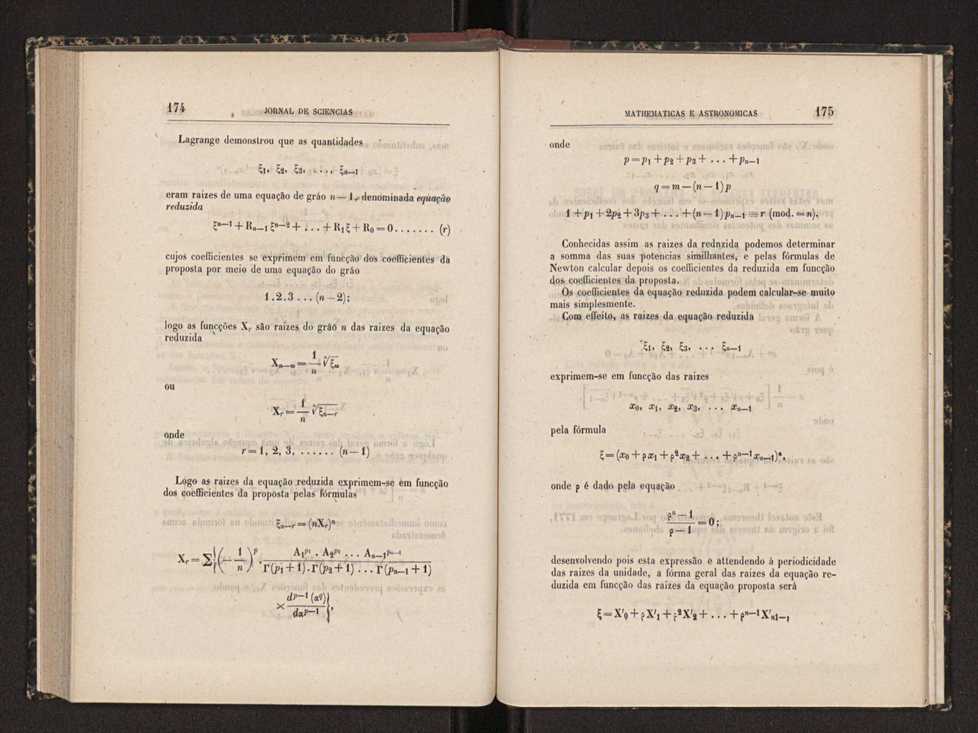 174 JORNAL DE SCIENCIAS
Lagrange demonstrou que as quantidades
ξ₁, ξ₂, ξ₃, . . . , ξₙ₋₁
eram raizes de uma equação de gráo n — 1, denominada equação
reduzida
ξⁿ⁻¹ + Rₙ₋₁ ξⁿ⁻² + . . . + R₁ξ + R₀ = 0 . . . . . . . (r)
cujos coefficientes se exprimem em funcção dos coefficientes da
proposta por meio de uma equação do gráo
1 . 2 . 3 . . . (n — 2);
logo as funcções Xᵣ são raizes do gráo n das raizes da equação
reduzida
Xₙ₋ₘ = 1/n ⁿ√ξₘ
ou
Xᵣ = 1/n ⁿ√ξₙ₋ᵣ
onde
r = 1, 2, 3, . . . . . . (n — 1)
Logo as raizes da equação reduzida exprimem-se em funcção
dos coefficientes da proposta pelas fórmulas
ξₙ₋ᵣ = (nXᵣ)ⁿ
Xᵣ = Σ{(— 1/n)^p . A₁^p₁ . A₂^p₂ . . . Aₙ₋₁^pₙ₋₁ / Γ(p₁ + 1) . Γ(p₂ + 1) . . . Γ(pₙ₋₁ + 1)
× d^p—1 (a^q) / da^p—1 },
MATHEMATICAS E ASTRONOMICAS 175
onde
p = p₁ + p₂ + p₃ + . . . + pₙ₋₁
q = m — (n — 1) p
1 + p₁ + 2p₂ + 3p₃ + . . . + (n — 1) pₙ₋₁ ≡ r (mod. = n).
Conhecidas assim as raizes da reduzida podemos determinar
a somma das suas potencias similhantes, e pelas fórmulas de
Newton calcular depois os coefficientes da reduzida em funcção
dos coefficientes da proposta.
Os coefficientes da equação reduzida podem calcular-se muito
mais simplesmente.
Com effeito, as raizes da equação reduzida
ξ₁, ξ₂, ξ₃, . . . ξₙ₋₁
exprimem-se em funcção das raizes
x₀, x₁, x₂, x₃, . . . xₙ₋₁
pela fórmula
ξ = (x₀ + ρx₁ + ρ²x₂ + . . . + ρⁿ⁻¹xₙ₋₁)ⁿ,
onde ρ é dado pela equação
ρⁿ — 1 / ρ — 1 = 0;
desenvolvendo pois esta expressão e attendendo á periodicidade
das raizes da unidade, a fórma geral das raizes da equação re-
duzida em funcção das raizes da equação proposta será
ξ = X'₀ + ρX'₁ + ρ²X'₂ + . . . + ρⁿ⁻¹X'ₙ₁₋₁